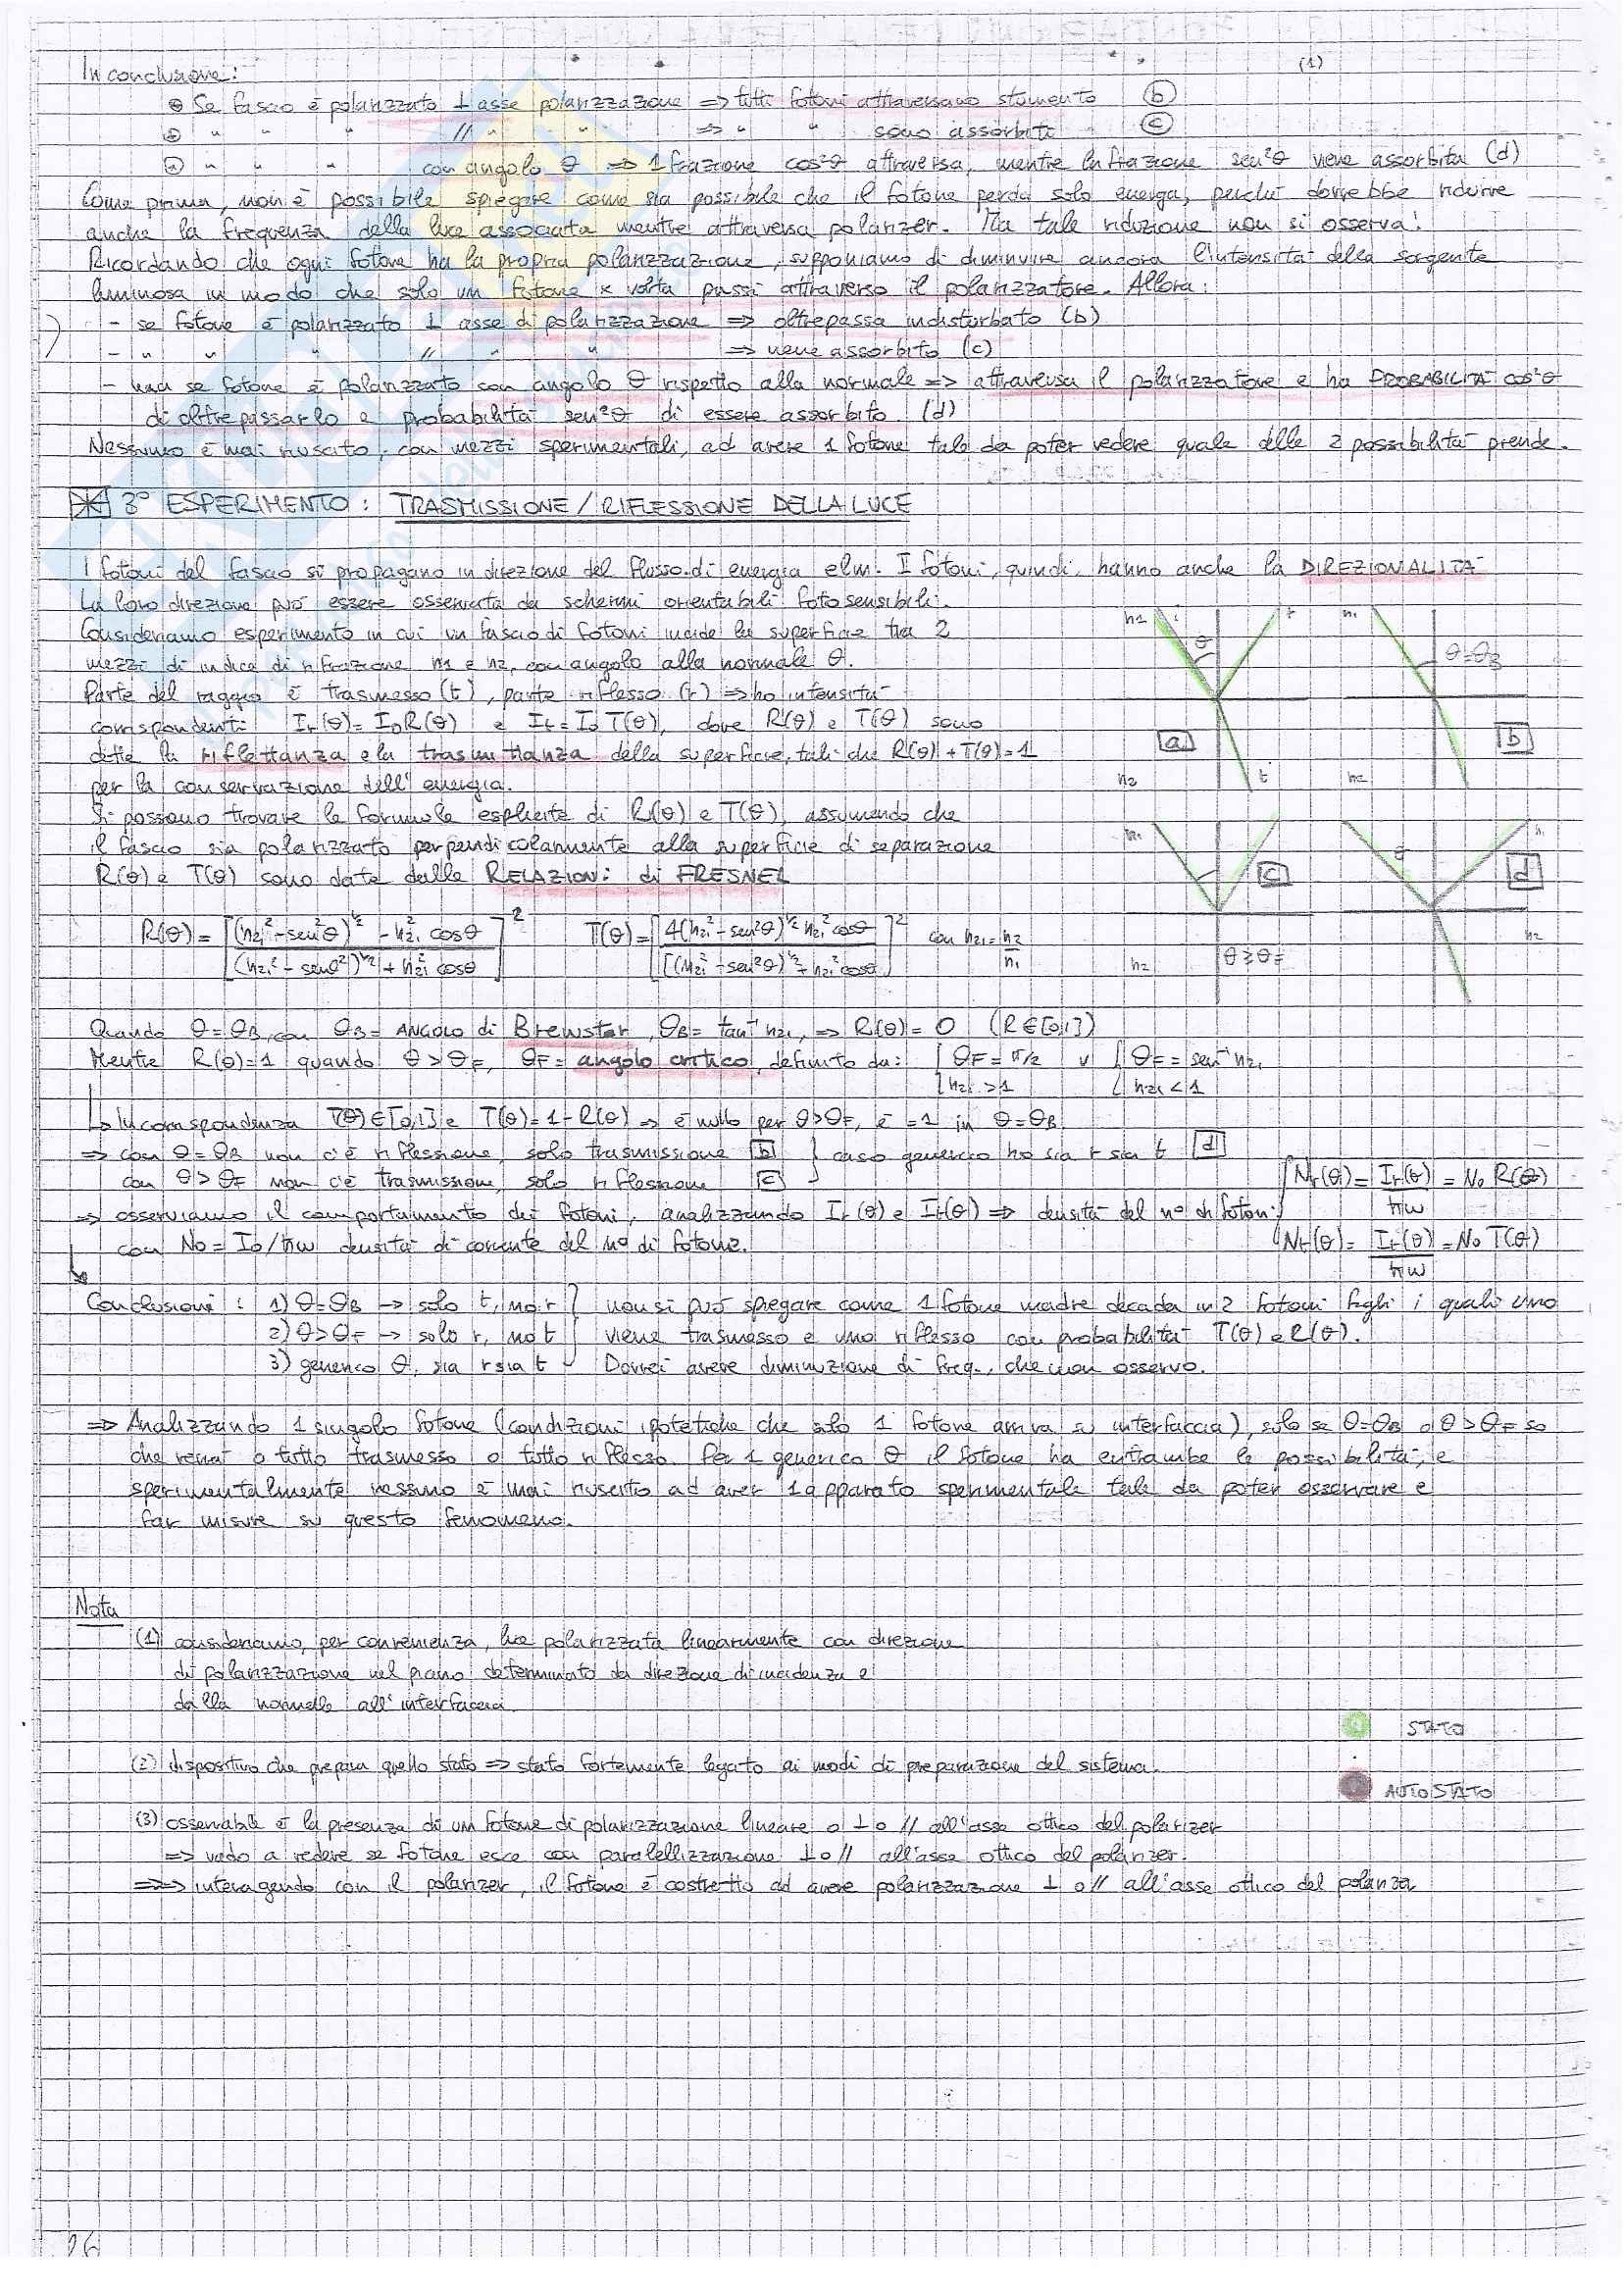 (1)
In conclusione:
Se fascio è polarizzato ⊥ asse polarizzazione => tutti fotoni attraversano stumento (b)
" " " // " " " => " " sono assorbiti (c)
" " " con angolo θ => 1 frazione cos²θ attraversa, mentre la frazione sen²θ viene assorbita (d)
Come prima, non è possibile spiegare come sia possibile che il fotone perda solo energia, perchè dovrebbe ridurre
anche la frequenza della luce associata mentre attraversa polarizer. Ma tale riduzione non si osserva!
Ricordando che ogni fotone ha la propria polarizzazione, supponiamo di diminuire ancora l'intensità della sorgente
luminosa in modo che solo un fotone x volta passi attraverso il polarizzatore. Allora:
- se fotone è polarizzato ⊥ asse di polarizzazione => oltrepassa indisturbato (b)
- " " " // " " => viene assorbito (c)
- se fotone è polarizzato con angolo θ rispetto alla normale => attraversa il polarizzatore e ha PROBABILITÀ cos²θ
di oltrepassarlo e probabilità sen²θ di essere assorbito (d)
Nessuno è mai riuscito, con mezzi sperimentali, ad avere 1 fotone tale da poter vedere quale delle 2 possibilità prende.
3° ESPERIMENTO: TRASMISSIONE/RIFLESSIONE DELLA LUCE
I fotoni del fascio si propagano in direzione del flusso di energia elm. I fotoni, quindi, hanno anche la DIREZIONALITÀ
La loro direzione può essere osservata da schermi orientabili fotosensibili.
Consideriamo esperimento in cui un fascio di fotoni incide la superficie tra 2
mezzi di indice di rifrazione n1 e n2, con angolo alla normale θ.
Parte del raggio è trasmesso (t), parte riflesso (r) => ho intensità
corrispondenti Ir(θ) = I0R(θ) e It = I0 T(θ), dove R(θ) e T(θ) sono
dette la riflettanza e la trasmittanza della superficie, tali che R(θ) + T(θ) = 1
per la conservazione dell'energia.
Si possono trovare le formule esplicite di R(θ) e T(θ), assumendo che
il fascio sia polarizzato perpendicolarmente alla superficie di separazione
R(θ) e T(θ) sono date dalle RELAZIONI di FRESNEL
n1 i θ r a n2 t
n1 θ=θB b n2
n1 c n2 θ≥θF
θ n1 d n2
R(θ) = [((n21² - sen²θ)^½ - n21² cosθ) / ((n21² - senθ²)^½ + n21² cosθ)]²
T(θ) = [4(n21² - sen²θ)^½ n21² cosθ / [(n21² - sen²θ)^½ + n21² cosθ]]² con n21 = n2/n1
Quando θ=θB, con θB = ANGOLO di Brewster, θB = tan⁻¹ n21, => R(θ) = 0 (R∈[0,1])
Mentre R(θ)=1 quando θ > θF, θF = angolo critico, definito da: { θF = π/2 v { θF = sen⁻¹ n21
n21 > 1 n21 < 1
In corrispondenza T(θ)∈[0,1] e T(θ) = 1 - R(θ) => è nullo per θ>θF, è =1 in θ=θB
=> con θ=θB non c'è riflessione, solo trasmissione [b] } caso generico ho sia r sia t [d]
con θ>θF non c'è trasmissione, solo riflessione [c]
=> osserviamo il comportamento dei fotoni, analizzando Ir(θ) e It(θ) => densità del n° di fotoni
con N0 = I0/ħω densità di corrente del n° di fotoni.
Nr(θ) = Ir(θ)/ħω = N0 R(θ)
Nt(θ) = It(θ)/ħω = N0 T(θ)
Conclusioni: 1) θ=θB -> solo t, no r } non si può spiegare come 1 fotone madre decada in 2 fotoni figli i quali uno
2) θ>θF -> solo r, no t viene trasmesso e uno riflesso con probabilità T(θ) e R(θ).
3) generico θ, sia r sia t Dovrei avere diminuzione di freq., che non osservo.
=> Analizzando 1 singolo fotone (condizioni ipotetiche che solo 1 fotone arriva su interfaccia), solo se θ=θB o θ>θF so
che verrà o tutto trasmesso o tutto riflesso. Per 1 generico θ il fotone ha entrambe le possibilità, e
sperimentalmente nessuno è mai riuscito ad aver 1 apparato sperimentale tale da poter osservare e
far misure su questo fenomeno.
Nota
(1) consideriamo, per convenienza, luce polarizzata linearmente con direzione
di polarizzazione nel piano determinato da direzione di incidenza e
dalla normale all'interfaccia.
STATO
(2) dispositivo che prepara quello stato => stato fortemente legato ai modi di preparazione del sistema.
AUTOSTATO
(3) osservabile è la presenza di un fotone di polarizzazione lineare o ⊥ o // all'asse ottico del polarizer
=> vado a vedere se fotone esce con paralellizzazione ⊥ o // all'asse ottico del polarizer.
=>=> interagendo con il polarizer, il fotone è costretto ad avere polarizzazione ⊥ o // all'asse ottico del polariza
26